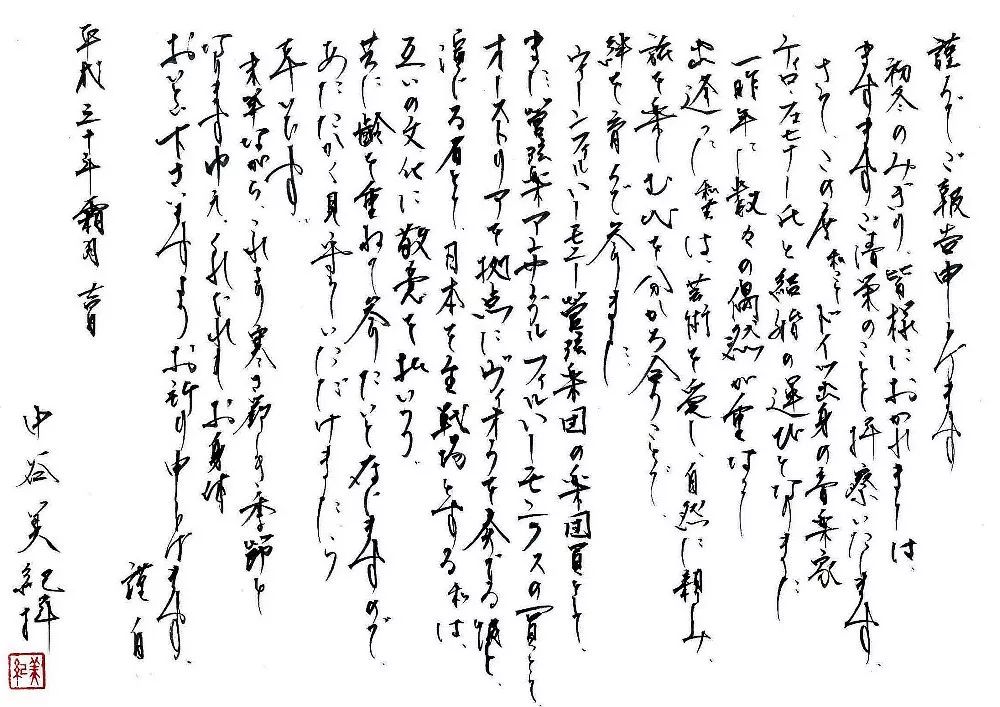 謹んでご報告申し上げます
初冬のみぎり、皆様におかれましては、
ますますご清栄のことと拝察いたします。
さて、この度 私こと ドイツ出身の音楽家
ティロ・フェヒナー氏と結婚の運びとなりました
一昨年に数々の偶然が重なって
出逢った私共は、芸術を愛し、自然に親しみ、
旅を楽しむ心を分かち合うことで、
絆を育んで参りました
ウィーンフィルハーモニー管弦楽団の楽団員として、
また、管弦楽アンサンブルフィルハーモニクスの一員として
オーストリアを拠点にヴィオラを奏でる彼と、
演じる者として、日本を主戦場とする私は、
互いの文化に敬意を払いつつ、
共に齢を重ねて参りたいと存じますので、
あたたかく見守っていただけましたら
幸いです。
末筆ながら、これより寒さ厳しき季節と
なります ゆえ、くれぐれもお身体
おいとい下さいますようお祈り申し上げます。
謹白
平成三十年霜月 吉日
中谷美紀拝
美紀